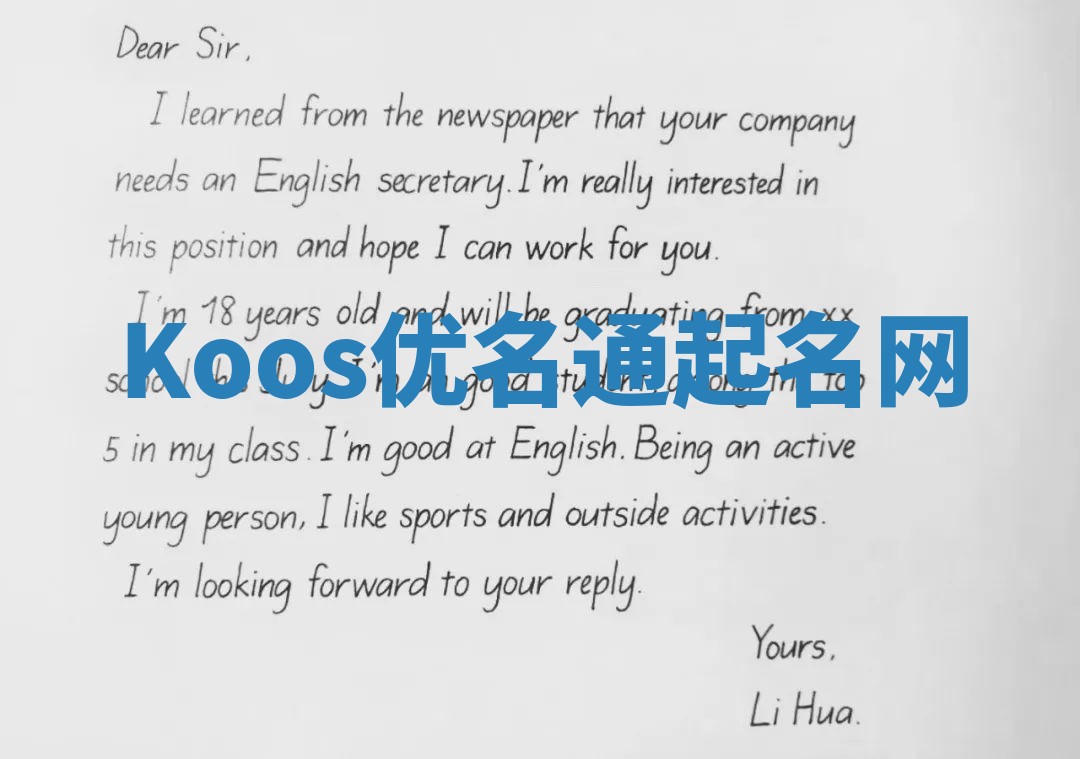 Dear Sir,
I learned from the newspaper that your company
needs an English secretary. I'm really interested in
this position and hope I can work for you.
I'm 18 years old and will be graduating from xx
Koos优名通起名网
school this July I'm good student, among the top
5 in my class. I'm good at English. Being an active
young person, I like sports and outside activities.
I'm looking forward to your reply.
Yours,
Li Hua.